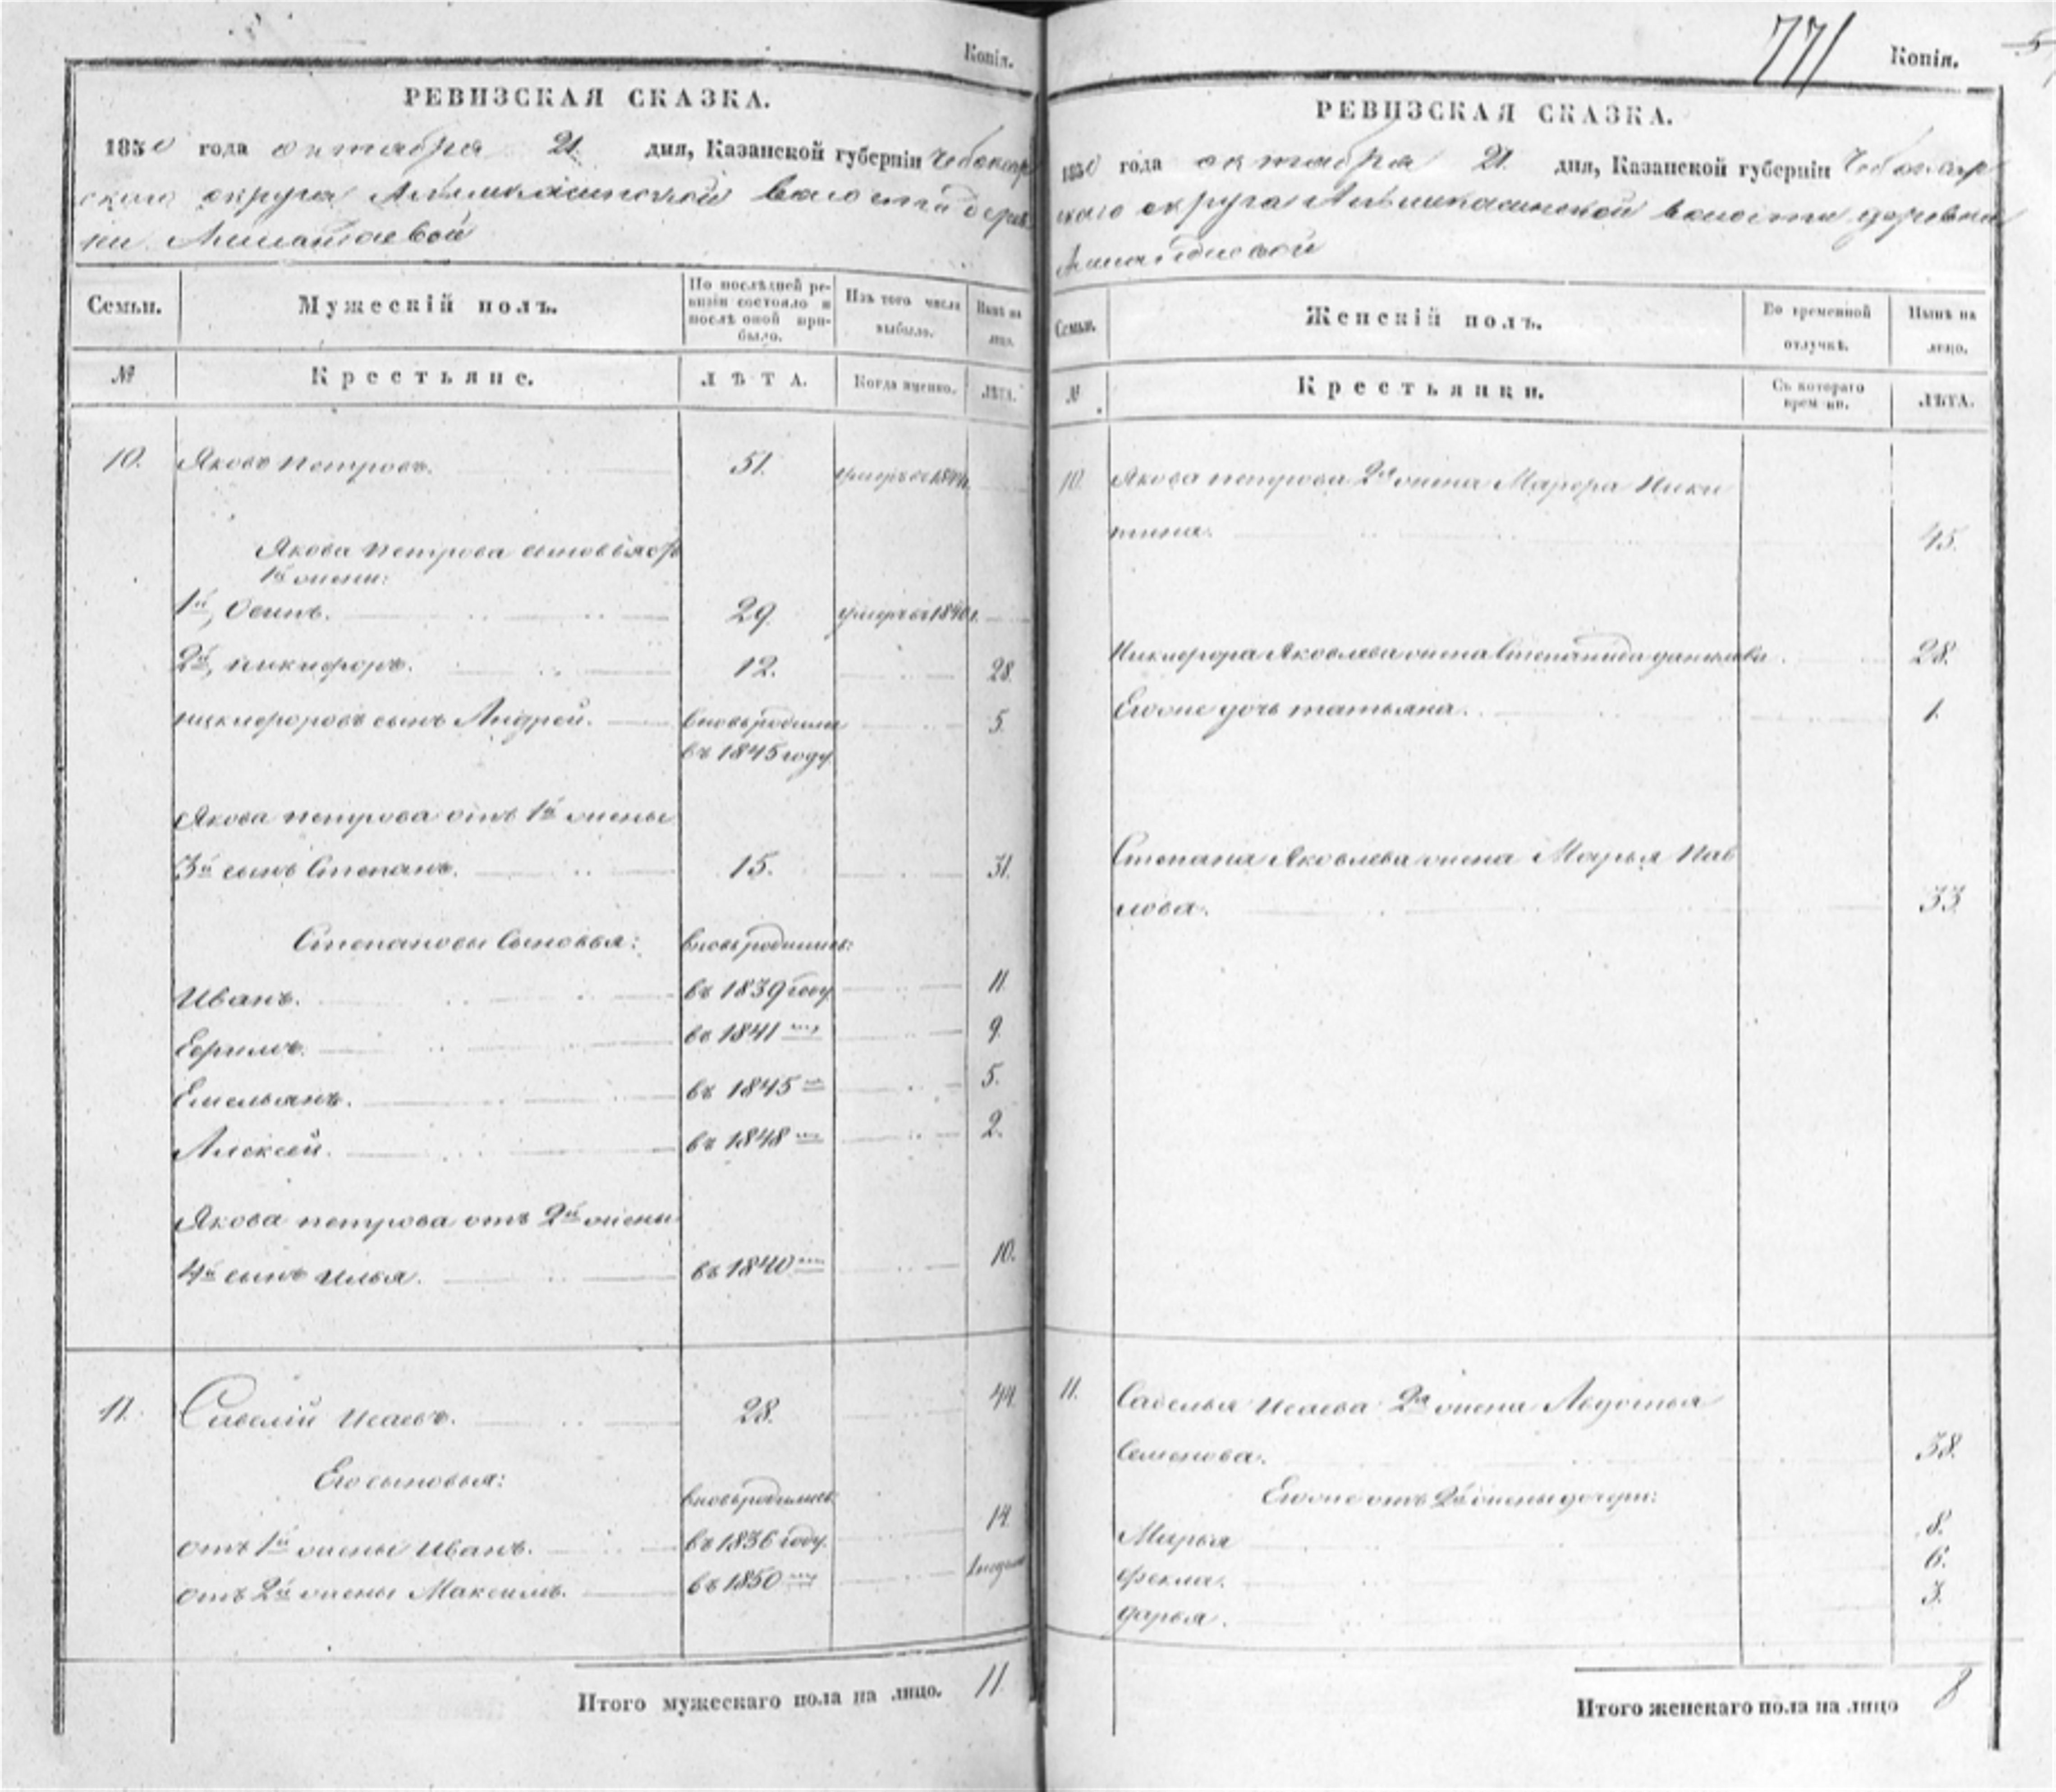 Копія.
РЕВИЗСКАЯ СКАЗКА.
1850 года октября 21 дня, Казанской губерніи Чебоксар
скаго округа волости дерев
ни
Семьи.
Мужескій полъ.
По послѣдней ре-
визіи состояло и
послѣ оной при-
было.
Изъ того числа
выбыло.
Нынѣ на
лицо.
№
Крестьяне.
ЛѢТА.
Когда именно.
ЛѢТА.
10. Яковъ Петровъ. 51. умеръ въ
Якова Петрова сыновья отъ
1й жены:
1й, Осипъ. 29. умеръ въ 1840 г.
2й, Никифоръ. 12. 28.
Никифоровъ сынъ Андрей. вновь родился 5.
въ 1845 году
Якова Петрова отъ 1й жены
3й сынъ Степанъ. 15. 31.
Степановы сыновья: вновь родились:
Иванъ. въ 1839 году 11.
Ефимъ. въ 1841 9.
Емельянъ. въ 1845 5.
Алексей. въ 1848 2.
Якова Петрова отъ 2й жены
4й сынъ Илья. въ 1840 10.
11. Савелій Исаевъ. 28. 44.
Его сыновья: вновь родились
отъ 1й жены Иванъ. въ 1836 году 14.
отъ 2й жены Максимъ. въ 1850
Итого мужескаго пола на лицо. 11
771
Копія.
РЕВИЗСКАЯ СКАЗКА.
1850 года октября 21 дня, Казанской губерніи Чебоксар
скаго округа волости деревни
Семьи.
Женскій полъ.
Во временной
отлучкѣ.
Нынѣ на
лицо.
№
Крестьянки.
Съ котораго
времени.
ЛѢТА.
10. Якова Петрова 2я жена Марфа Ники
тина. 45.
Никифора Яковлева жена Степанида Данилова. 28.
Егоже дочь Татьяна. 1.
Степана Яковлева жена Марья Пав
лова. 33
11. Савелья Исаева 2я жена Авдотья
Семенова. 38.
Егоже отъ 2й жены дочери:
Марья 8.
Фекла. 6.
Дарья. 3.
Итого женскаго пола на лицо 8